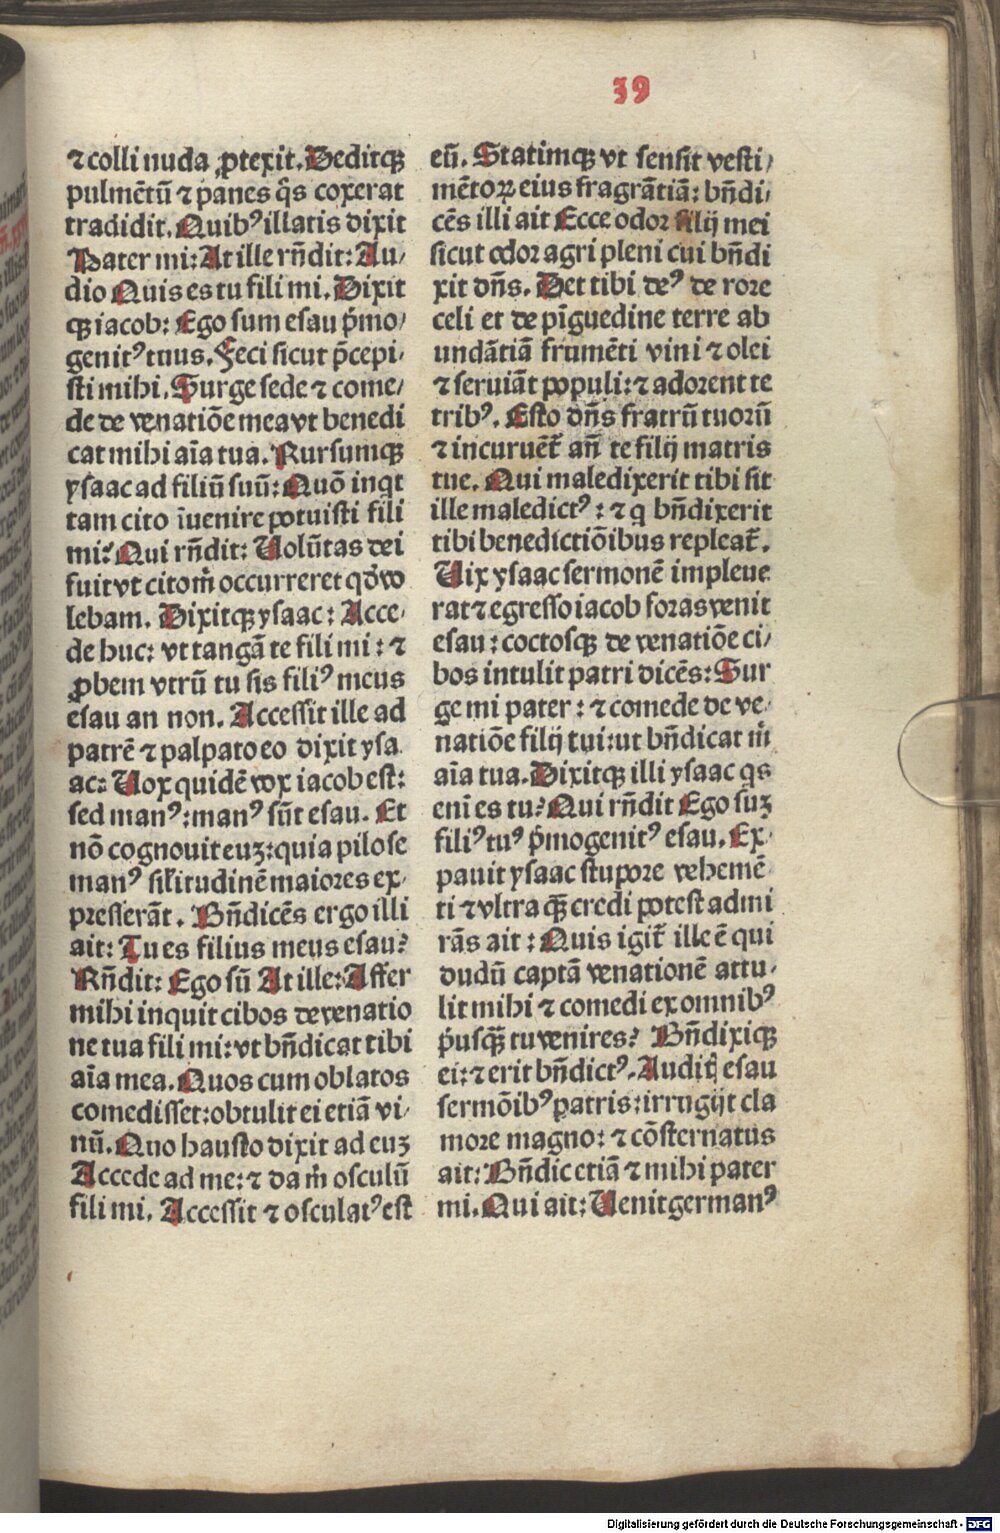 39
⁊ colli nuda ꝓtexit. Deditqꝫ
pulmētū ⁊ panes q̄s coxerat
tradidit. Quibꝰ illatis dixit
Pater mi: At ille rn̄dit: Au⸗
dio Quis es tu fili mi. Dixit
qꝫ iacob: Ego sum esau p̄mo⸗
genitꝰ tuus. Feci sicut p̄cepi⸗
sti mihi. Surge sede ⁊ come⸗
de de venatiōe mea vt benedi
cat mihi aīa tua. Rursumqꝫ
ysaac ad filiū suū: Quō inqt
tam cito īuenire potuisti fili
mi? Qui rn̄dit: Volūtas dei
fuit vt cito m̄ occurreret qđ vo
lebam. Dixitqꝫ ysaac: Acce⸗
de huc: vt tangā te fili mi: ⁊
ꝓbem vtrū tu sis filiꝰ meus
esau an non. Accessit ille ad
patrē ⁊ palpato eo dixit ysa
ac: Vox quidē vox iacob est:
sed manꝰ: manꝰ sūt esau. Et
nō cognouit euꝫ: quia pilose
manꝰ sil̄itudinē maiores ex⸗
presserāt. Bn̄dicēs ergo illi
ait: Tu es filius meus esau?
Rn̄dit: Ego sū At ille: Affer
mihi inquit cibos de venatio
ne tua fili mi: vt bn̄dicat tibi
aīa mea. Quos cum oblatos
comedisset: obtulit ei etiā vi⸗
nū. Quo hausto dixit ad euꝫ
Accede ad me: ⁊ da m̄ osculū
fili mi. Accessit ⁊ osculatꝰ est
eū. Statimqꝫ vt sensit vesti⸗
mētoꝝ eius fragrātiā: bn̄di⸗
cēs illi ait Ecce odor filij mei
sicut odor agri pleni cui bn̄di
xit dn̄s. Det tibi deꝰ de rore
celi et de pīguedine terre ab
undātiā frumēti vini ⁊ olei
⁊ seruiāt populi: ⁊ adorent te
tribꝰ. Esto dn̄s fratrū tuorū
⁊ incuruēt᷑ an̄ te filij matris
tue. Qui maledixerit tibi sit
ille maledictꝰ: ⁊ q bn̄dixerit
tibi benedictiōibus repleat᷑.
Vix ysaac sermonē impleue
rat ⁊ egresso iacob foras venit
esau: coctosqꝫ de venatiōe ci⸗
bos intulit patri dicēs: Sur
ge mi pater: ⁊ comede de ve⸗
natiōe filij tui: ut bn̄dicat m̄
aīa tua. Dixitqꝫ illi ysaac qs
eni es tu? Qui rn̄dit Ego suꝫ
filiꝰ tuꝰ p̄mogenitꝰ esau. Ex⸗
pauit ysaac stupore vehemē
ti ⁊ vltra qꝫ̄ credi potest admi
rās ait: Quis igit᷑ ille ē qui
dudū captā venationē attu⸗
lit mihi ⁊ comedi ex omnibꝰ
p̄usqꝫ̄ tu venires? Bn̄dixiqꝫ
ei: ⁊ erit bn̄dictꝰ. Auditꝭ esau
sermōibꝰ patris: irrugijt cla
more magno: ⁊ cōsternatus
ait: Bn̄dic etiā ⁊ mihi pater
mi. Qui ait: Venit germanꝰ
Digitalisierung gefördert durch die Deutsche Forschungsgemeinschaft - DFG